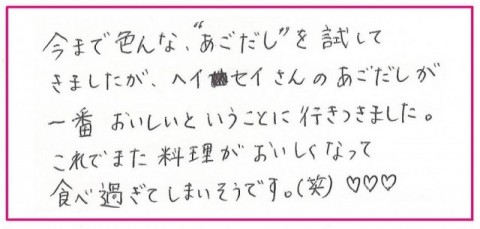 今まで色んな、“あごだし”を試して
きましたが、ヘイセイさんのあごだしが
一番おいしいということに行きつきました。
これでまた料理がおいしくなって
食べ過ぎてしまいそうです。(笑)♡♡♡